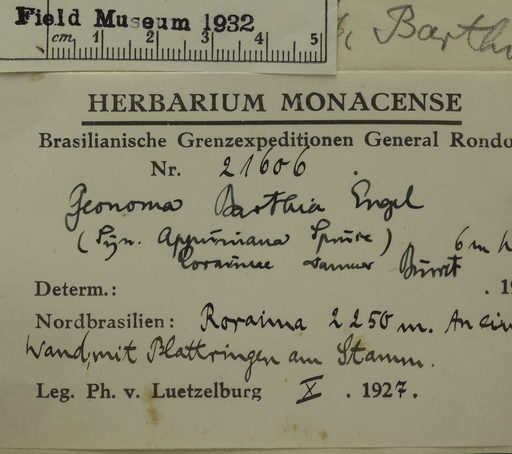 Field Museum 1932
cm 1 2 3 4 5
Barth
HERBARIUM MONACENSE
Brasilianische Grenzexpeditionen General Rondo
Nr. 21606
Geonoma Barthia Engel
(Syn. Appuniana Spruce) 6 m h
Burret
Determ.: . 19
Nordbrasilien: Roraima 2250 m. An ein
Wand, mit Blattringen am Stamm.
Leg. Ph. v. Luetzelburg X . 1927.